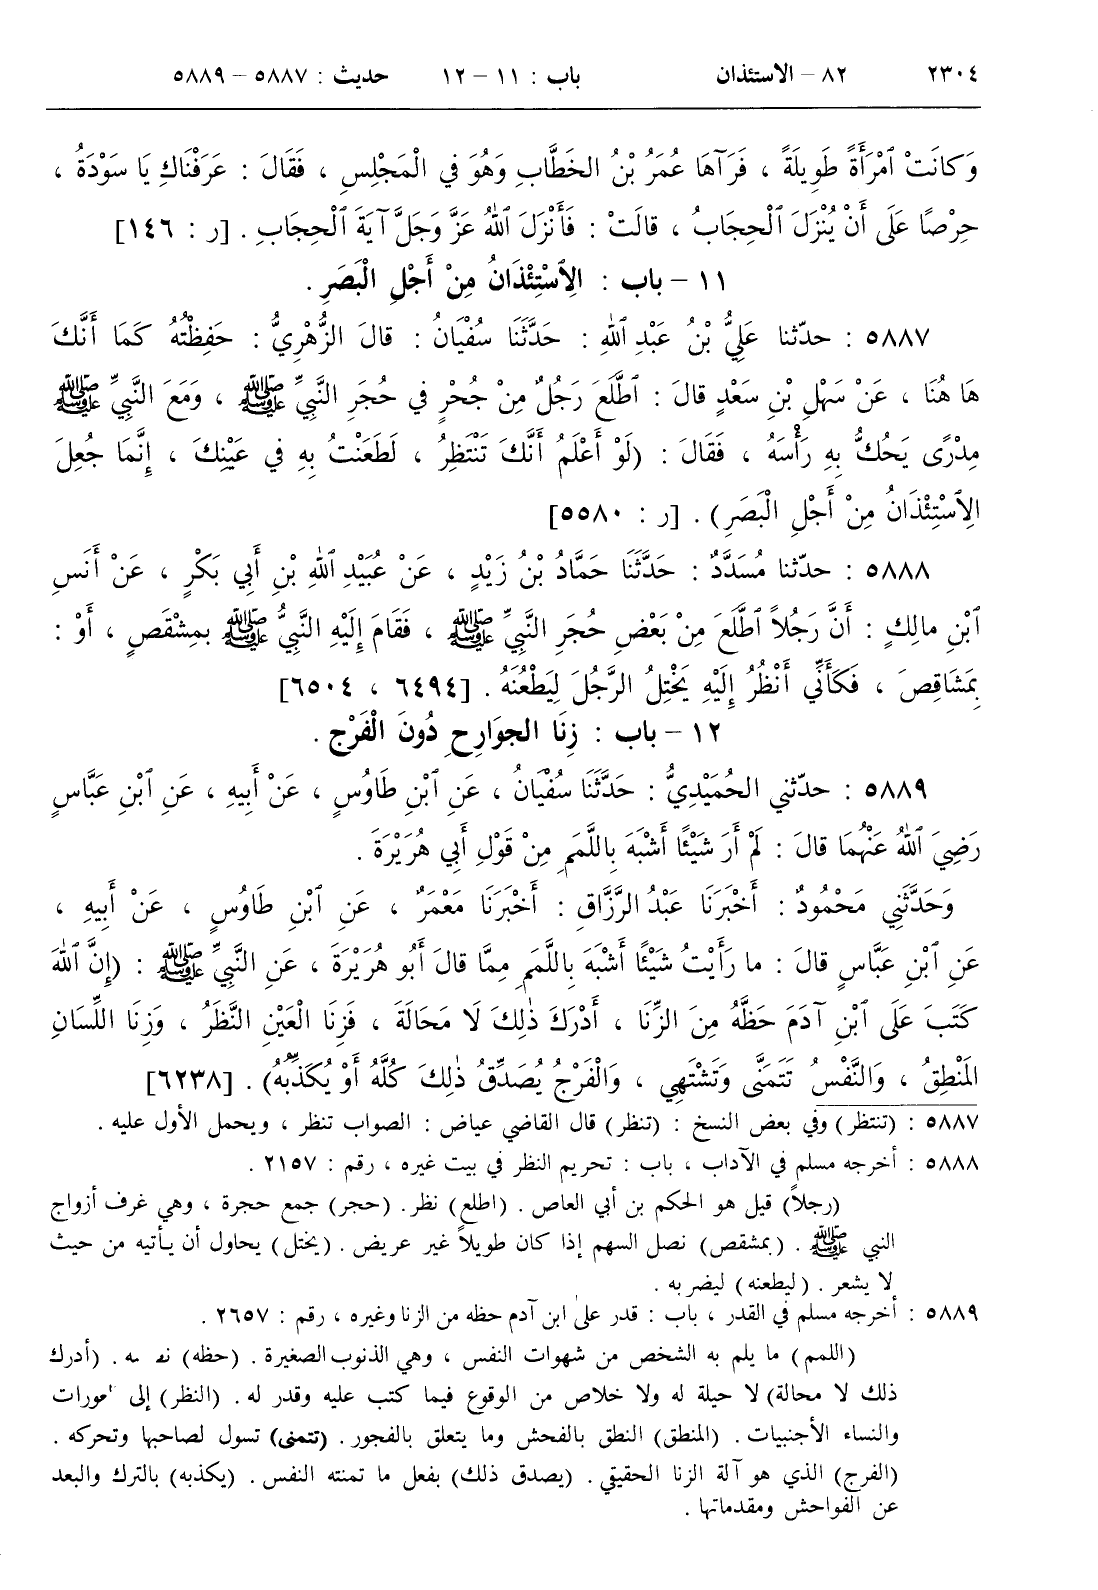 ٢٣٠٤ ٨٢ – الاستئذان باب : ١١ – ١٢ حديث : ٥٨٨٧ – ٥٨٨٩
وَكانَتْ ٱمْرَأَةً طَوِيلَةً ، فَرَآهَا عُمَرُ بْنُ الخَطَّابِ وَهُوَ في الْمَجْلِسِ ، فَقَالَ : عَرَفْنَاكِ يَا سَوْدَةُ ،
حِرْصًا عَلَى أَنْ يُنْزَلَ ٱلْحِجَابُ ، قالَتْ : فَأَنْزَلَ ٱللهُ عَزَّ وَجَلَّ آيَةَ ٱلْحِجَابِ . [ر : ١٤٦]
١١ – باب : الِٱسْتِئْذَانُ مِنْ أَجْلِ الْبَصَرِ .
٥٨٨٧ : حدّثنا عَلِيُّ بْنُ عَبْدِ ٱللهِ : حَدَّثَنَا سُفْيَانُ : قالَ الزُّهْرِيُّ : حَفِظْتُهُ كَمَا أَنَّكَ
هَا هُنَا ، عَنْ سَهْلِ بْنِ سَعْدٍ قالَ : ٱطَّلَعَ رَجُلٌ مِنْ جُحْرٍ في حُجَرِ النَّبِيِّ ﷺ ، وَمَعَ النَّبِيِّ ﷺ
مِدْرًى يَحُكُّ بِهِ رَأْسَهُ ، فَقَالَ : (لَوْ أَعْلَمُ أَنَّكَ تَنْتَظِرُ ، لَطَعَنْتُ بِهِ في عَيْنِكَ ، إِنَّمَا جُعِلَ
الِٱسْتِئْذَانُ مِنْ أَجْلِ الْبَصَرِ) . [ر : ٥٥٨٠]
٥٨٨٨ : حدّثنا مُسَدَّدٌ : حَدَّثَنَا حَمَّادُ بْنُ زَيْدٍ ، عَنْ عُبَيْدِ ٱللهِ بْنِ أَبِي بَكْرٍ ، عَنْ أَنَسِ
ٱبْنِ مالِكٍ : أَنَّ رَجُلاً ٱطَّلَعَ مِنْ بَعْضِ حُجَرِ النَّبِيِّ ﷺ ، فَقَامَ إِلَيْهِ النَّبِيُّ ﷺ بِمِشْقَصٍ ، أَوْ :
بِمَشَاقِصَ ، فَكَأَنِّي أَنْظُرُ إِلَيْهِ يَخْتِلُ الرَّجُلَ لِيَطْعُنَهُ . [٦٤٩٤ ، ٦٥٠٤]
١٢ – باب : زِنَا الجَوَارِحِ دُونَ الْفَرْجِ .
٥٨٨٩ : حدّثني الحُمَيْدِيُّ : حَدَّثَنَا سُفْيَانُ ، عَنِ ٱبْنِ طَاوُسٍ ، عَنْ أَبِيهِ ، عَنِ ٱبْنِ عَبَّاسٍ
رَضِيَ ٱللهُ عَنْهُمَا قالَ : لَمْ أَرَ شَيْئًا أَشْبَهَ بِاللَّمَمِ مِنْ قَوْلِ أَبِي هُرَيْرَةَ .
وَحَدَّثَنِي مَحْمُودٌ : أَخْبَرَنَا عَبْدُ الرَّزَّاقِ : أَخْبَرَنَا مَعْمَرٌ ، عَنِ ٱبْنِ طَاوُسٍ ، عَنْ أَبِيهِ ،
عَنِ ٱبْنِ عَبَّاسٍ قالَ : ما رَأَيْتُ شَيْئًا أَشْبَهَ بِاللَّمَمِ مِمَّا قالَ أَبُو هُرَيْرَةَ ، عَنِ النَّبِيِّ ﷺ : (إِنَّ ٱللهَ
كَتَبَ عَلَى ٱبْنِ آدَمَ حَظَّهُ مِنَ الزِّنَا ، أَدْرَكَ ذٰلِكَ لَا مَحَالَةَ ، فَزِنَا الْعَيْنِ النَّظَرُ ، وَزِنَا اللِّسَانِ
المَنْطِقُ ، وَالنَّفْسُ تَتَمَنَّى وَتَشْتَهِي ، وَالْفَرْجُ يُصَدِّقُ ذٰلِكَ كُلَّهُ أَوْ يُكَذِّبُهُ) . [٦٢٣٨]
٥٨٨٧ : (تنتظر) وفي بعض النسخ : (تنظر) قال القاضي عياض : الصواب تنظر ، ويحمل الأول عليه .
٥٨٨٨ : أخرجه مسلم في الآداب ، باب : تحريم النظر في بيت غيره ، رقم : ٢١٥٧ .
(رجلاً) قيل هو الحكم بن أبي العاص . (اطلع) نظر . (حجر) جمع حجرة ، وهي غرف أزواج
النبي ﷺ . (بمشقص) نصل السهم إذا كان طويلاً غير عريض . (يختل) يحاول أن يأتيه من حيث
لا يشعر . (ليطعنه) ليضربه .
٥٨٨٩ : أخرجه مسلم في القدر ، باب : قدر على ابن آدم حظه من الزنا وغيره ، رقم : ٢٦٥٧ .
(اللمم) ما يلم به الشخص من شهوات النفس ، وهي الذنوب الصغيرة . (حظه) . (أدرك
ذلك لا محالة) لا حيلة له ولا خلاص من الوقوع فيما كتب عليه وقدر له . (النظر) إلى
والنساء الأجنبيات . (المنطق) النطق بالفحش وما يتعلق بالفجور . (تتمنى) تسول لصاحبها وتحركه .
(الفرج) الذي هو آلة الزنا الحقيقي . (يصدق ذلك) بفعل ما تمنته النفس . (يكذبه) بالترك والبعد
عن الفواحش ومقدماتها .